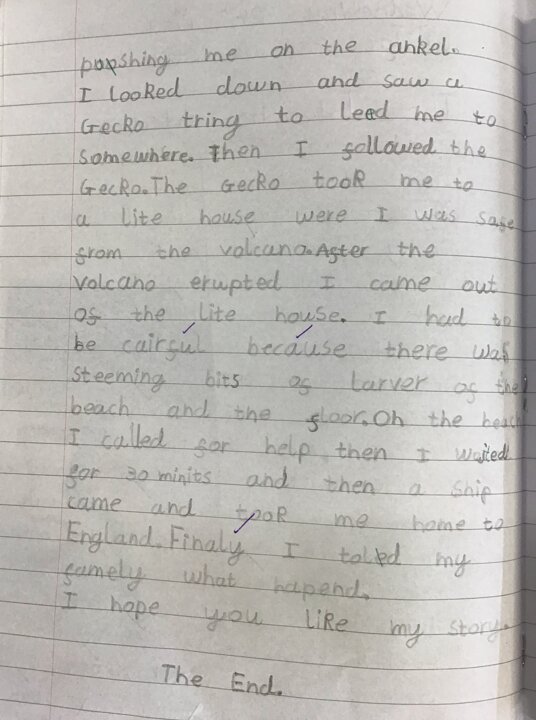 popshing me on the ankel.
I looked down and saw a
Gecko tring to leed me to
somewhere. Then I follwed the
Gecko. The Gecko took me to
a lite house were I was safe
from the volcano. After the
volcano erupted I came out
of the lite house. I had to
be cairful because there was
steeming bits of larver of the
beach and the floor. On the beach
I called for help then I waited
for 30 minits and then a ship
came and took me home to
England. Finaly I told my
famely what hapend.
I hope you like my story.
The End.